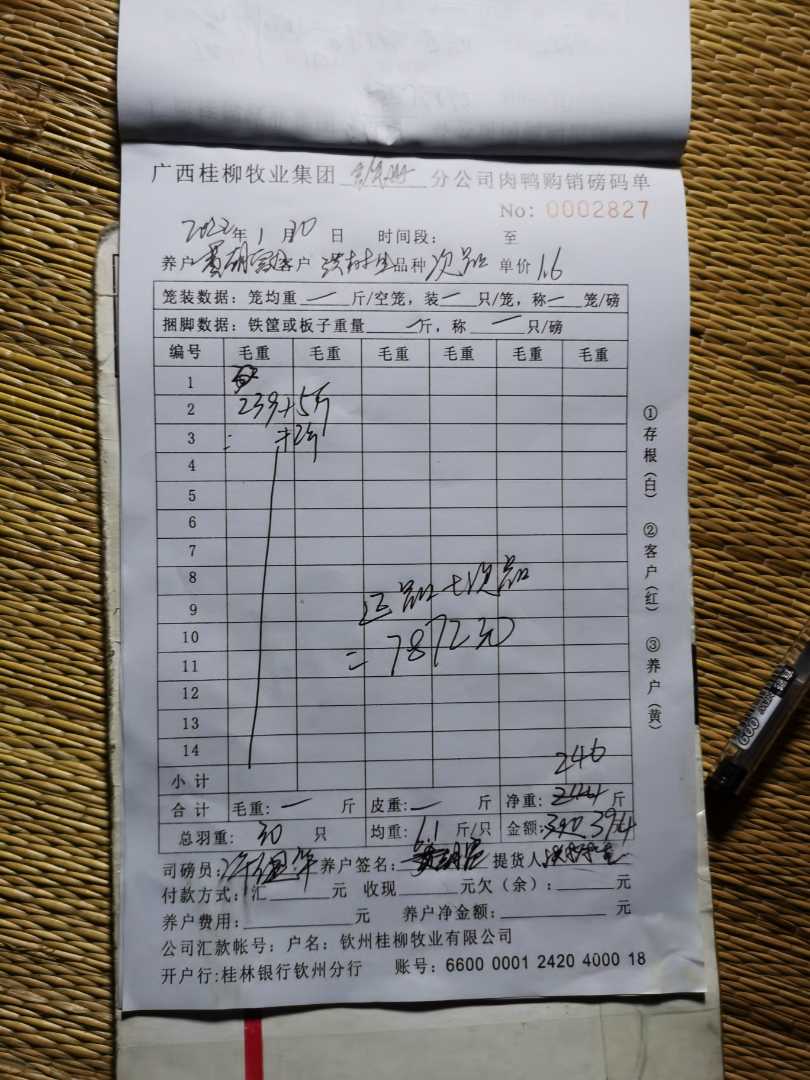 广西桂柳牧业集团 分公司肉鸭购销磅码单
No: 0002827
2022年1月30日 时间段: 至
养户 黄胡 客户 洪村生 品种 次品 单价 1.6
笼装数据: 笼均重 — 斤/空笼, 装 — 只/笼, 称 — 笼/磅
捆脚数据: 铁筐或板子重量 — 斤, 称 — 只/磅
编号 毛重 毛重 毛重 毛重 毛重 毛重
1
2 239+5斤
3 +2斤
4
5
6
7
8 正品+次品
9
10 =7872元
11
12
13
14
小计 246
合计 毛重: — 斤 皮重: — 斤 净重: 244 斤
总羽重: 30 只 均重: 6.1 斤/只 金额: 390 394
司磅员: 养户签名: 提货人
付款方式: 汇 元 收现 元欠(余): 元
养户费用: 元 养户净金额: 元
公司汇款帐号: 户名: 钦州桂柳牧业有限公司
开户行:桂林银行钦州分行 账号: 6600 0001 2420 4000 18
①存根(白) ②客户(红) ③养户(黄)